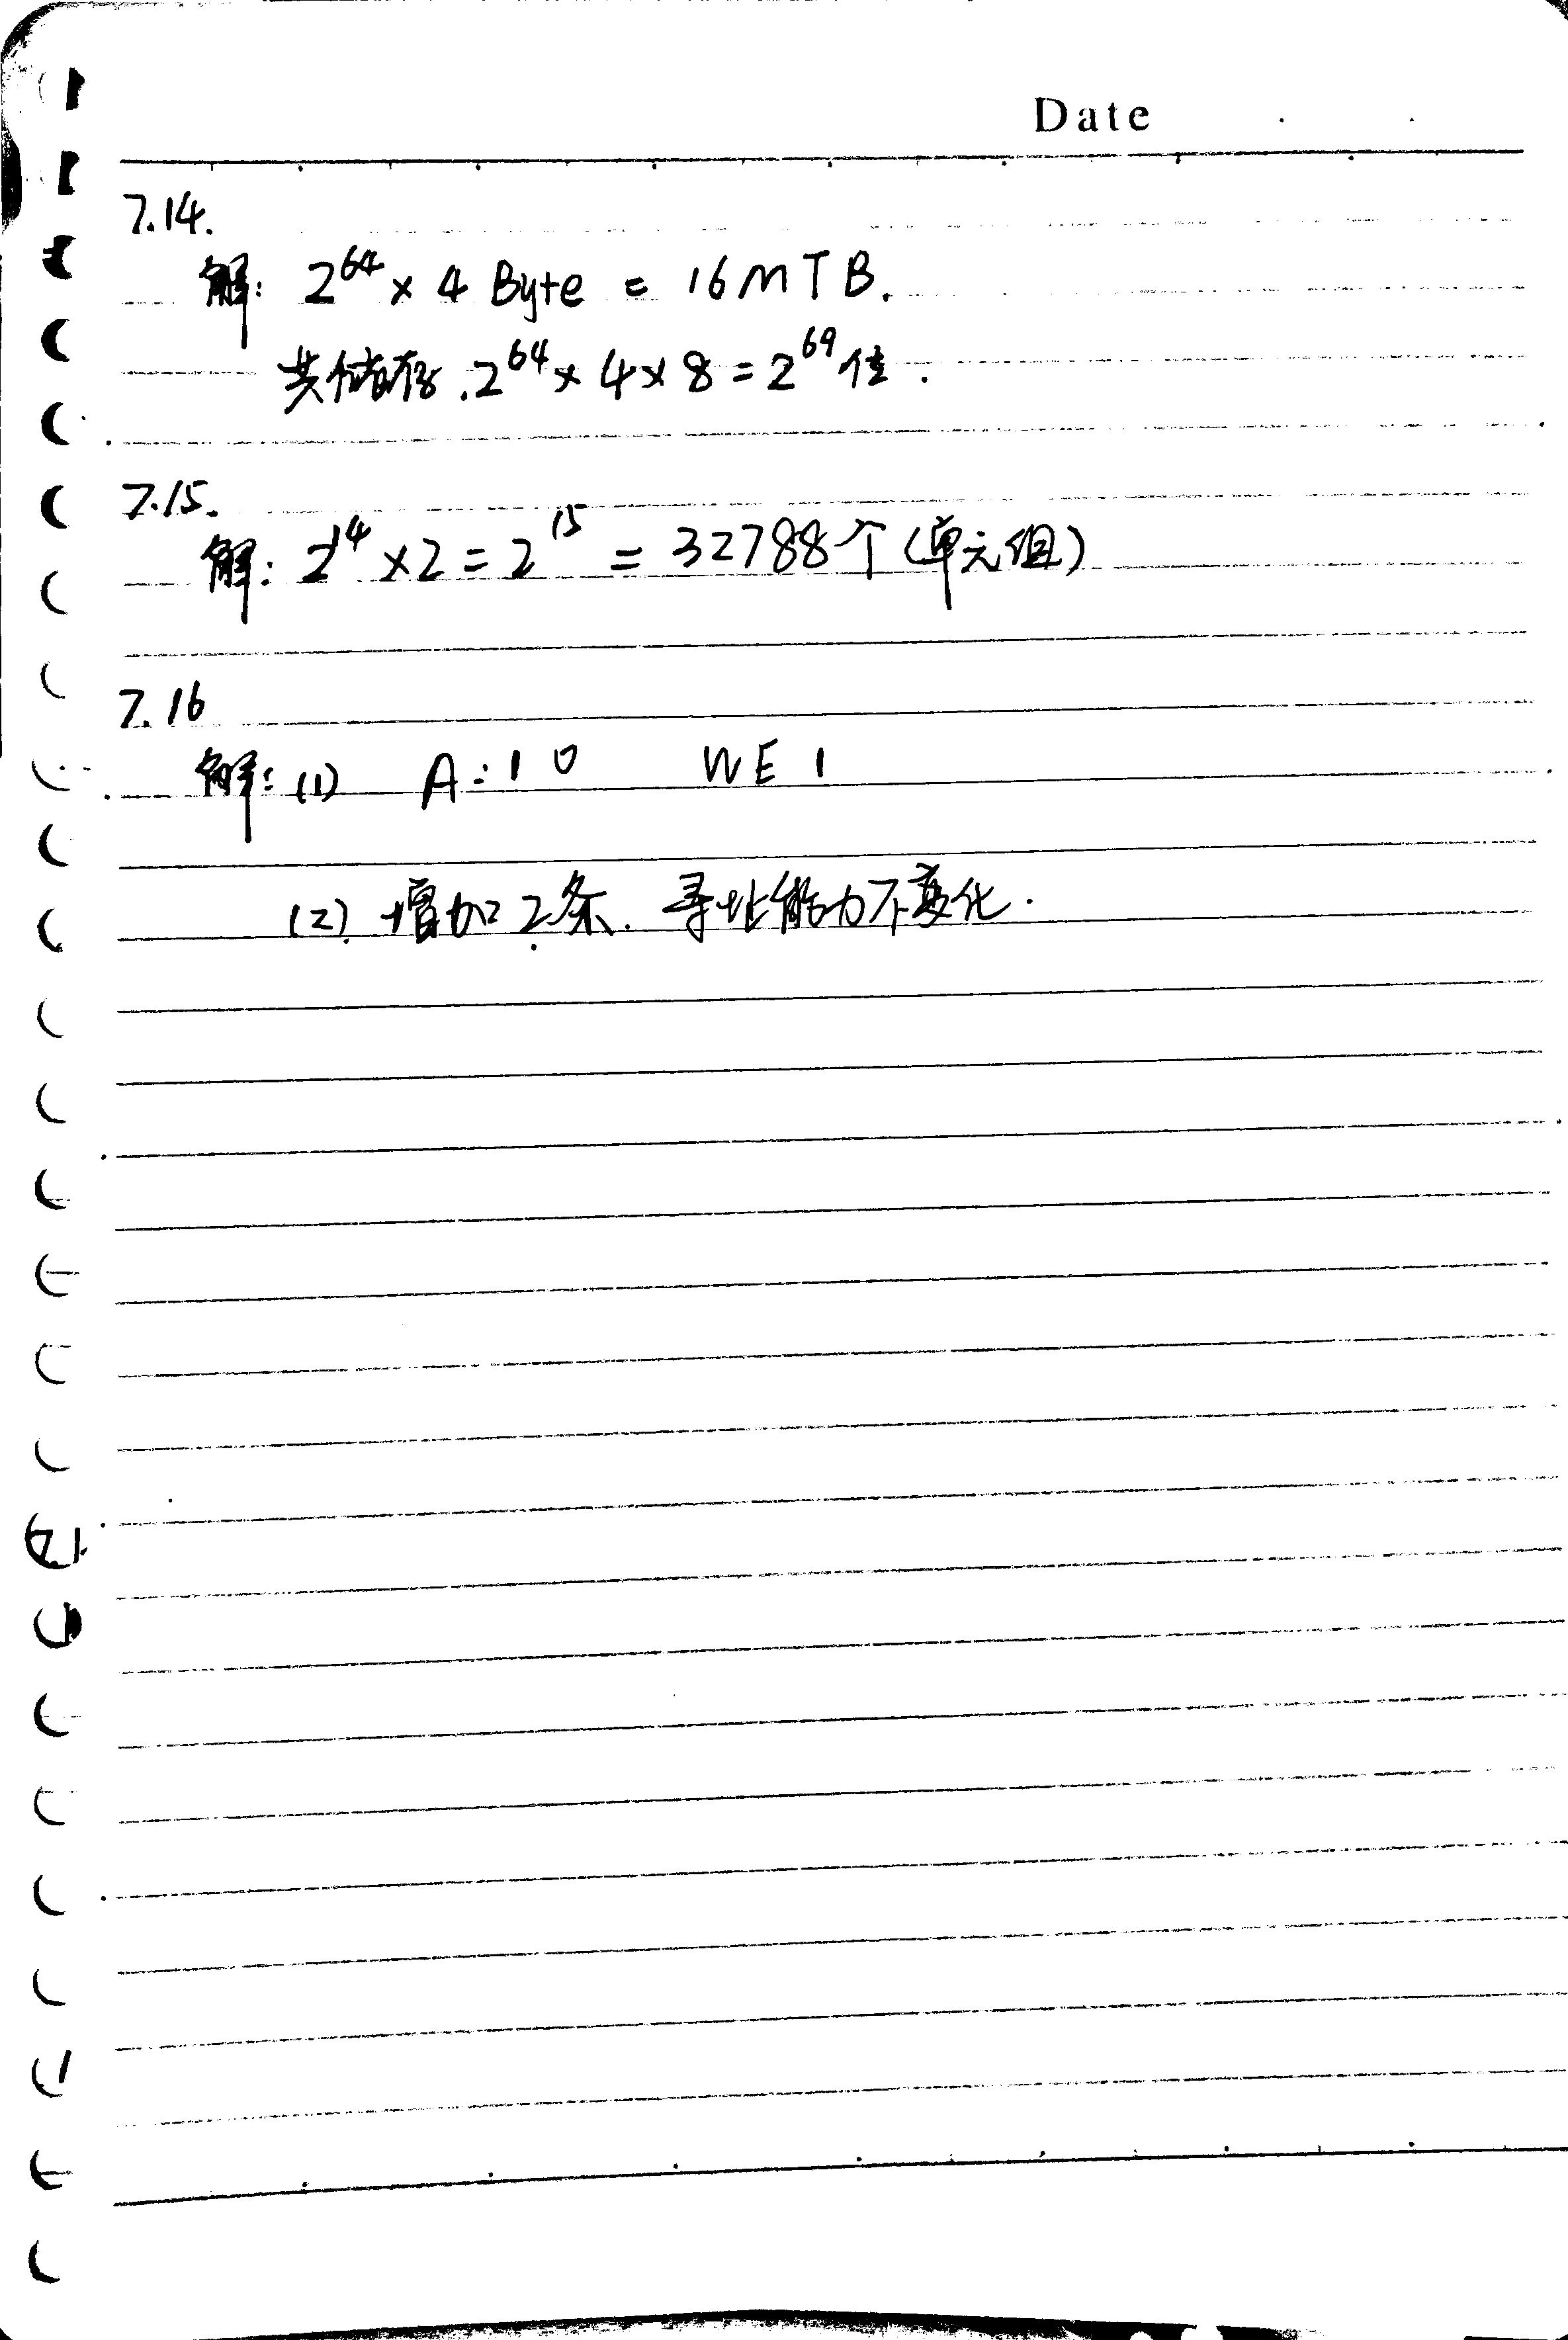 Date
7.14.
解: 2^64 × 4 Byte = 16MTB.
共储存.2^64 × 4 × 8 = 2^69 位.
7.15.
解: 2^14 × 2 = 2^15 = 32788个(单元组)
7.16
解: (1) A: 1 0 WE 1
(2) 增加2条. 寻址能力不变化.